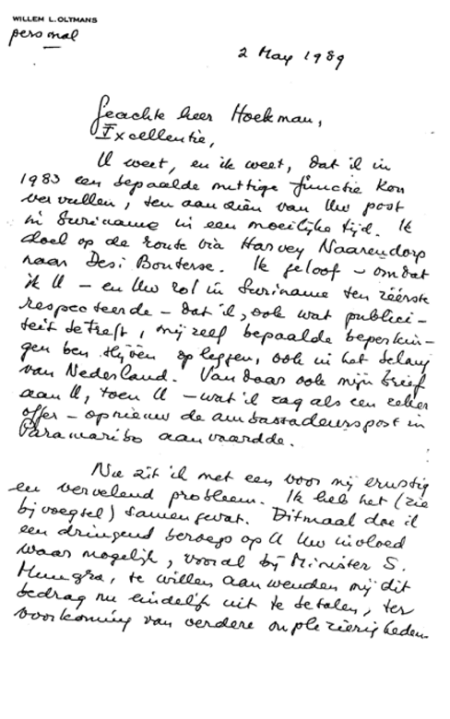 WILLEM L. OLTMANS
personal
2 May 1989
Geachte heer Hoekman,
Excellentie,
U weet, en ik weet, dat ik in
1983 een bepaalde nuttige functie kon
vervullen, ten aanzien van Uw post
in Suriname in een moeilijke tijd. Ik
doel op de route via Harvey Naarendorp
naar Desi Bouterse. Ik geloof - omdat
ik U - en Uw rol in Suriname ten zéérste
respecteerde - dat ik, ook wat publici-
teit betreft, mijzelf bepaalde beperkin-
gen ben blijven opleggen, ook in het belang
van Nederland. Vandaar ook mijn brief
aan U, toen U - wat ik zag als een zeker
offer - opnieuw de ambassadeurspost in
Paramaribo aanvaardde.
Nu zit ik met een voor mij ernstig
en vervelend probleem. Ik heb het (zie
bijvoegsel) samengevat. Ditmaal doe ik
een dringend beroep op U Uw invloed
waar mogelijk, vooral bij Minister S.
Mungra, te willen aanwenden mij dit
bedrag nu eindelijk uit te betalen, ter
voorkoming van verdere onplezierigheden.